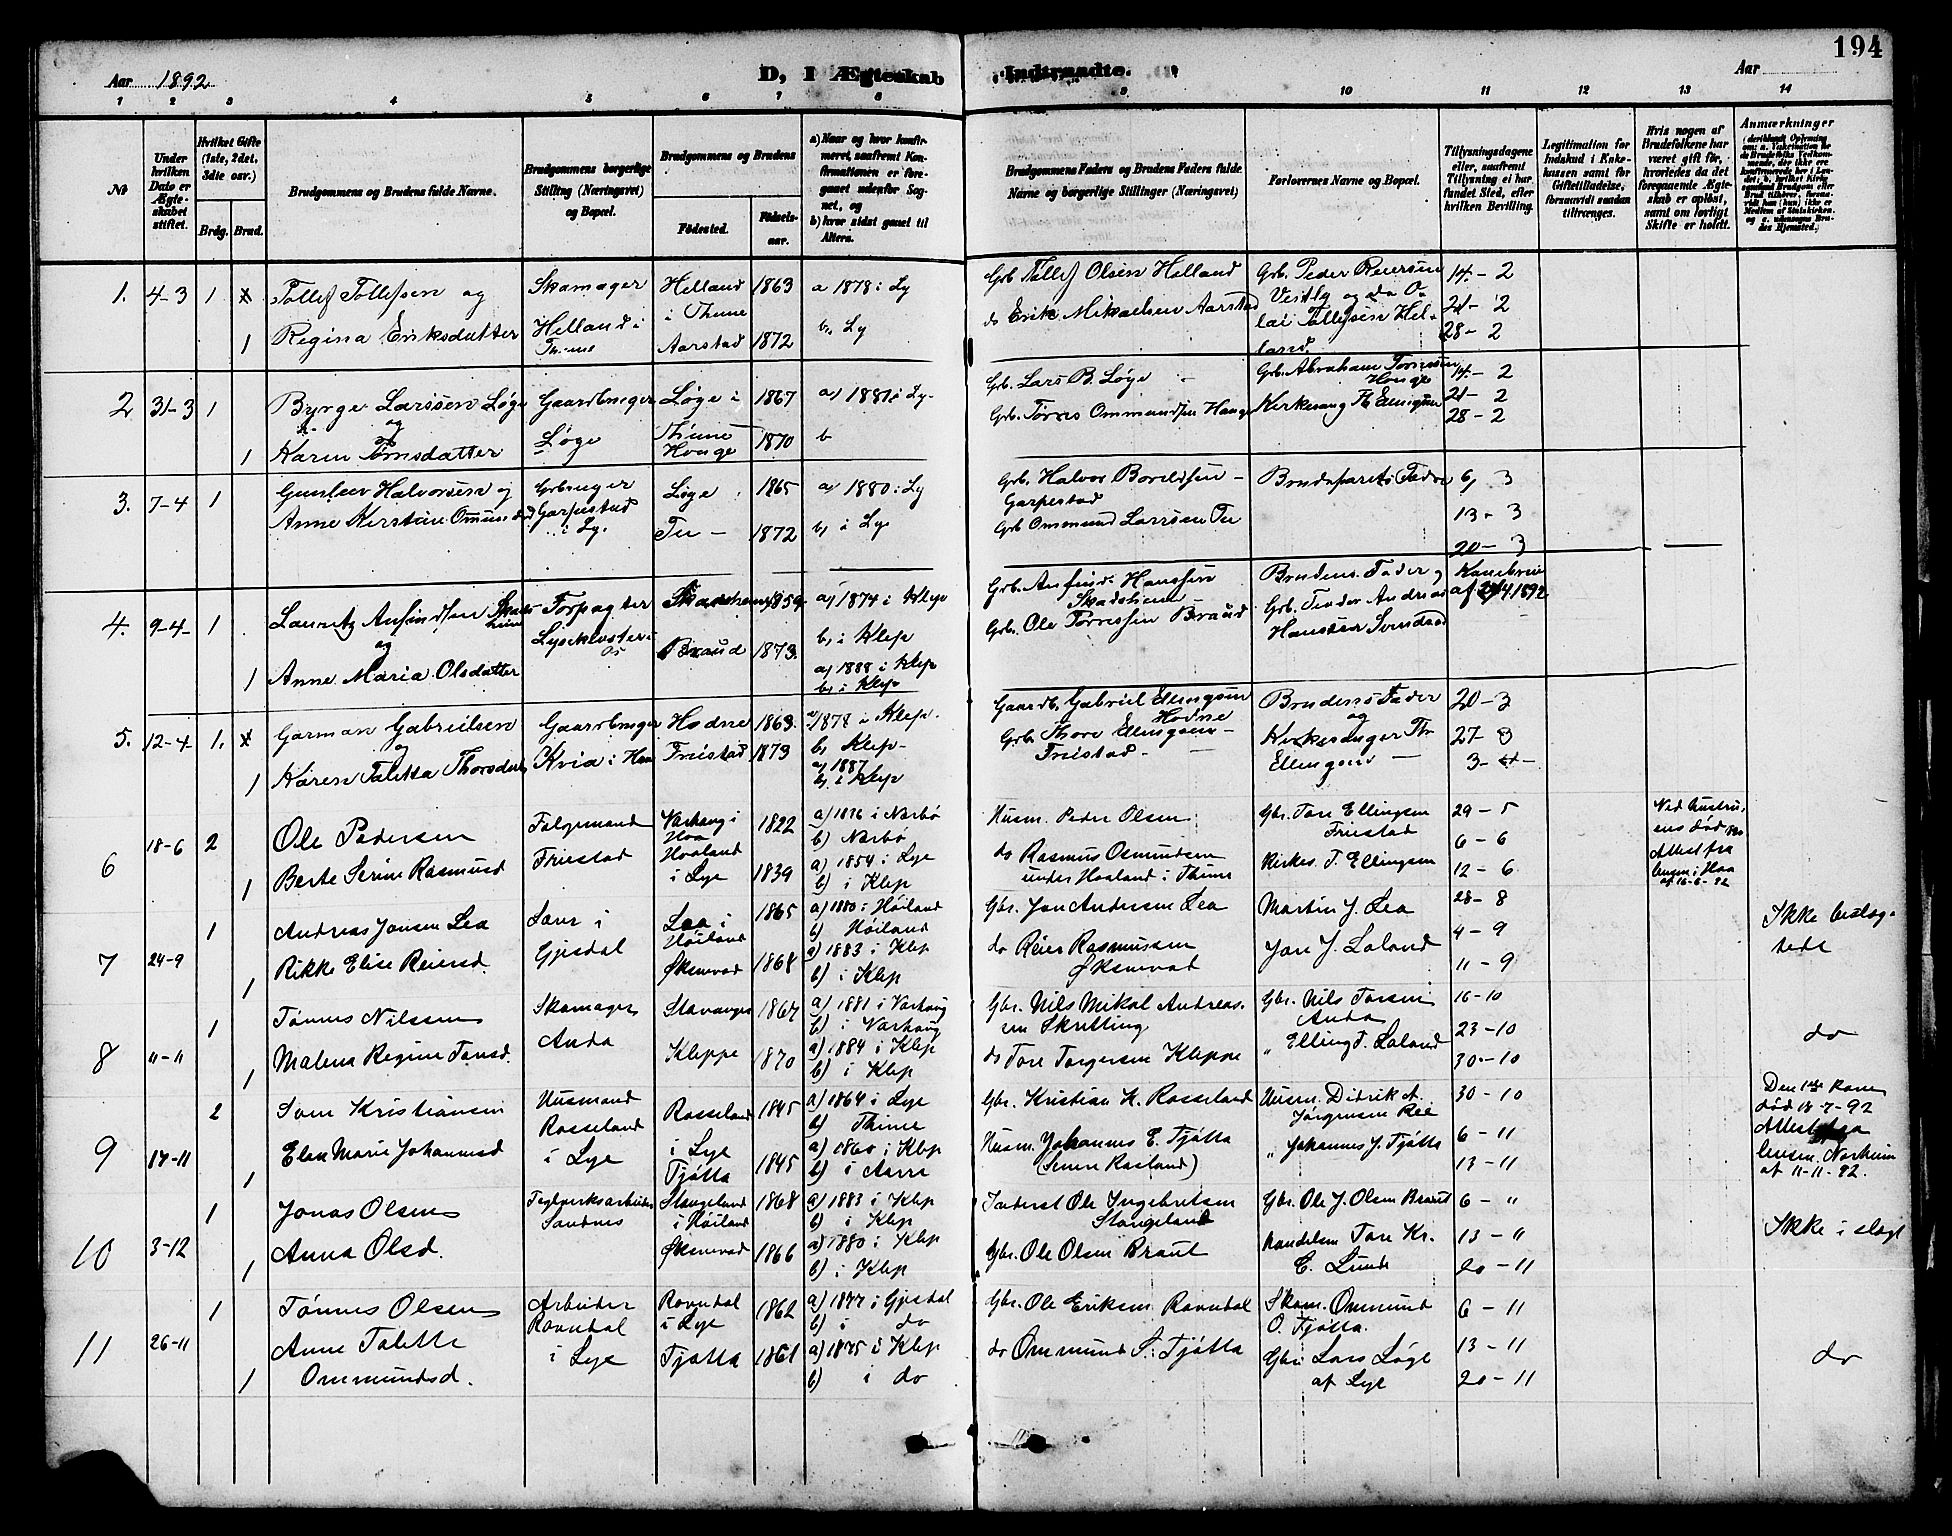 194
Aar 1892
D, I Ægteskab Indtraadte.
Aar
1 2 3 4 5 6 7 8 9 10 11 12 13 14
№
Under hvilken Dato er Ægteskabet stiftet.
Hvilket Gifte (1ste, 2det, 3die osv.)
Brdg. Brud.
Brudgommens og Brudens fulde Navne.
Brudgommens borgerlige Stilling (Næringsvei) og Bopæl.
Brudgommens og Brudens
Fødested.
Fødselsaar.
a) Naar og hvor konfirmeret, saafremt Konfirmationen er foregaaet udenfor Sognet, og
b) hvor sidst gaaet til Alters.
Brudgommens Faders og Brudens Faders fulde Navne og borgerlige Stillinger (Næringsvei)
Forlovernes Navne og Bopæl.
Tillysningsdagene eller, saafremt Tillysning ei har fundet Sted, efter hvilken Bevilling.
Legitimation for Indskud i Enkekassen samt for Giftetilladelse, forsaavidt saadan tiltrænges.
Hvis nogen af Brudefolkene har været gift før, hvorledes da det foregaaende Ægteskab er opløst, samt om lovligt Skifte er holdt.
Anmærkninger
1. 4-3 1 Tollef Tollefsen og Skomager Helland 1863 a 1878 i Ly Grb Tollef Olsen Helland Grb. Peder Reiersen 14 - 2
Vestly og do O- 21 - 2
1 Regina Eriksdatter Helland i Thime Aarstad 1872 b, Ly do Erik Mikaelsen Aarstad lai Tollefsen Hel- 28 - 2
i Thime
land.
2 31-3 1 Byrge Larssen Løge Gaardbruger Løge i 1867 a) 1881 i Ly- Grb. Lars B. Løge Grb. Abraham Tørresen Houge 14 - 2
og Thime Grb. Tørres Ommundsen Houge Kirkesang Th Ellingsen 21 - 2
1 Karen Tørresdatter Løge Houge 1870 b 28 - 2
3. 7-4 1 Gunleiv Halvorsen og Grbruger Løge 1865 a) 1880 i Ly Grb. Halvor Bordsen - Brudeparets Fædre 6, 3
Anne Kirstine Omundsd Garpestad i Ly. Tu - 1872 b, i Ly Garpestad 13 - 3
Grb Ommund Larssen Tu 20 - 3
4. 9-4- 1 Lauritz Anfindsen Skadsheim Forpagter Skadsheim 1859 a) 1874 i Klep Grb. Anfind Hanssen Skadsheim Brudens Fader og Kongebrev
og Lysekloster Braud 1873. b, i Klep Grb. Ole Tørressen Braud Grb. Andreas af 2/4 1892
1 Anne Maria Olsdatter Os a) 1888 i Klep
b, i Klep
5. 12-4 1. Garman Gabrielsen Gaardbruger Hodne 1863 a) 1878 i Klep. Gaardb. Gabriel Ellingsen Hodne Brudens Fader 20 - 3
og Kvia i Haa Friestad 1873 b, Klep- Grb. Thore Ellingsen - og 27 - 3
1 Karen Taletta Thorsdatt a) 1887 Friestad - Kirkesanger Th 3 - 4 -
b. i Klep Ellingsen
6 18-6 2 Ole Pedersen Følgemand Varhaug i Haa 1822 a) 1836 i Nærbø Husm. Peder Olsen Gbr. Tore Ellingsen Friestad 29 - 5 Ved Hustruens død
b) Nærbø 6 - 6 Attest fra
1 Berte Serine Rasmusd Friestad Hoaland i Lye 1839 a) 1854 i Lye do Rasmus Osmundsen Kirkes. T. Ellingsen 12 - 6 lensm. i Haa
b) i Klep under Hoaland i Thime af 16-6-92
7 24-9 1 Andreas Jonsen Lea Snur i Laa i Høiland 1865 a) 1880 i Høiland Gbr. Jon Andersen Lea Martin J. Lea 28 - 8 Ikke beslæg-
b) Høiland 4 - 9 tede
1 Rikke Elise Reiersd. Gjesdal Øksnevad 1868 a) 1883 i Klep do Reier Rasmussen Øksnevad Jon J. Laland 11 - 9
b) i Klep
8 11-11 1 Tønnes Nilssen Skomager Stavanger 1867 a) 1881 i Varhaug Gbr. Nils Mikal Andreassen Skretting Gbr. Nils Torsen Anda 16-10
b) i Varhaug 23-10 do
1 Malena Regine Torsd. Anda Kleppe 1870 a) 1884 i Klep do Tore Torgersen Kleppe " Elling T. Laland 30-10
b) i Klep
9 17-11 2 Sven Kristiansen Husmand Rosseland 1845 a) 1864 i Lye Gbr. Kristian K. Rosseland Husm. Didrik A. Jørgensen Ree 30 - 10 Den 1ste kone
Rosseland i Lye b) Thime 6 - 11 død 13-7-92
1 Elen Marie Johannesd i Lye Tjøtta 1845 a) 1860 i Klep Husm. Johannes E. Tjøtta " Johannes J. Tjøtta 13 - 11 Attest fra
b) i Aarre (Senere Rosland) lensm. Norheim
af 11-11-92.
10 3-12 1 Jonas Olsen Teglverksarbeider Stangeland i Høiland 1868 a) 1883 i Klep Inderst Ole Ingebretsen Stangeland Gbr. Ole J. Olsen Braut 6 - "
Sandnes b) i Klep 13 - " Ikke i slægt
1 Anna Olsd. Øksnevad 1866 a) 1880 i Klep Gbr. Ole Olsen Braut Handelsm Tore Kr. E. Lunde 20 - 11
b) i Klep
11 26-11 1 Tønnes Olsen Arbeider Ravndal i Lye 1862 a) 1877 i Gjesdal Gbr. Ole Eriksen Ravndal Skom. Ommund O. Tjøtta. 6 - 11
Ravndal b) i do 13 - 11
1 Anne Talette Ommundsd. i Lye Tjøtta 1861 a) 1875 i Klep do Ommund S. Tjøtta Gbr. Lars Løge af Lye 20 - 11 do
b) i do